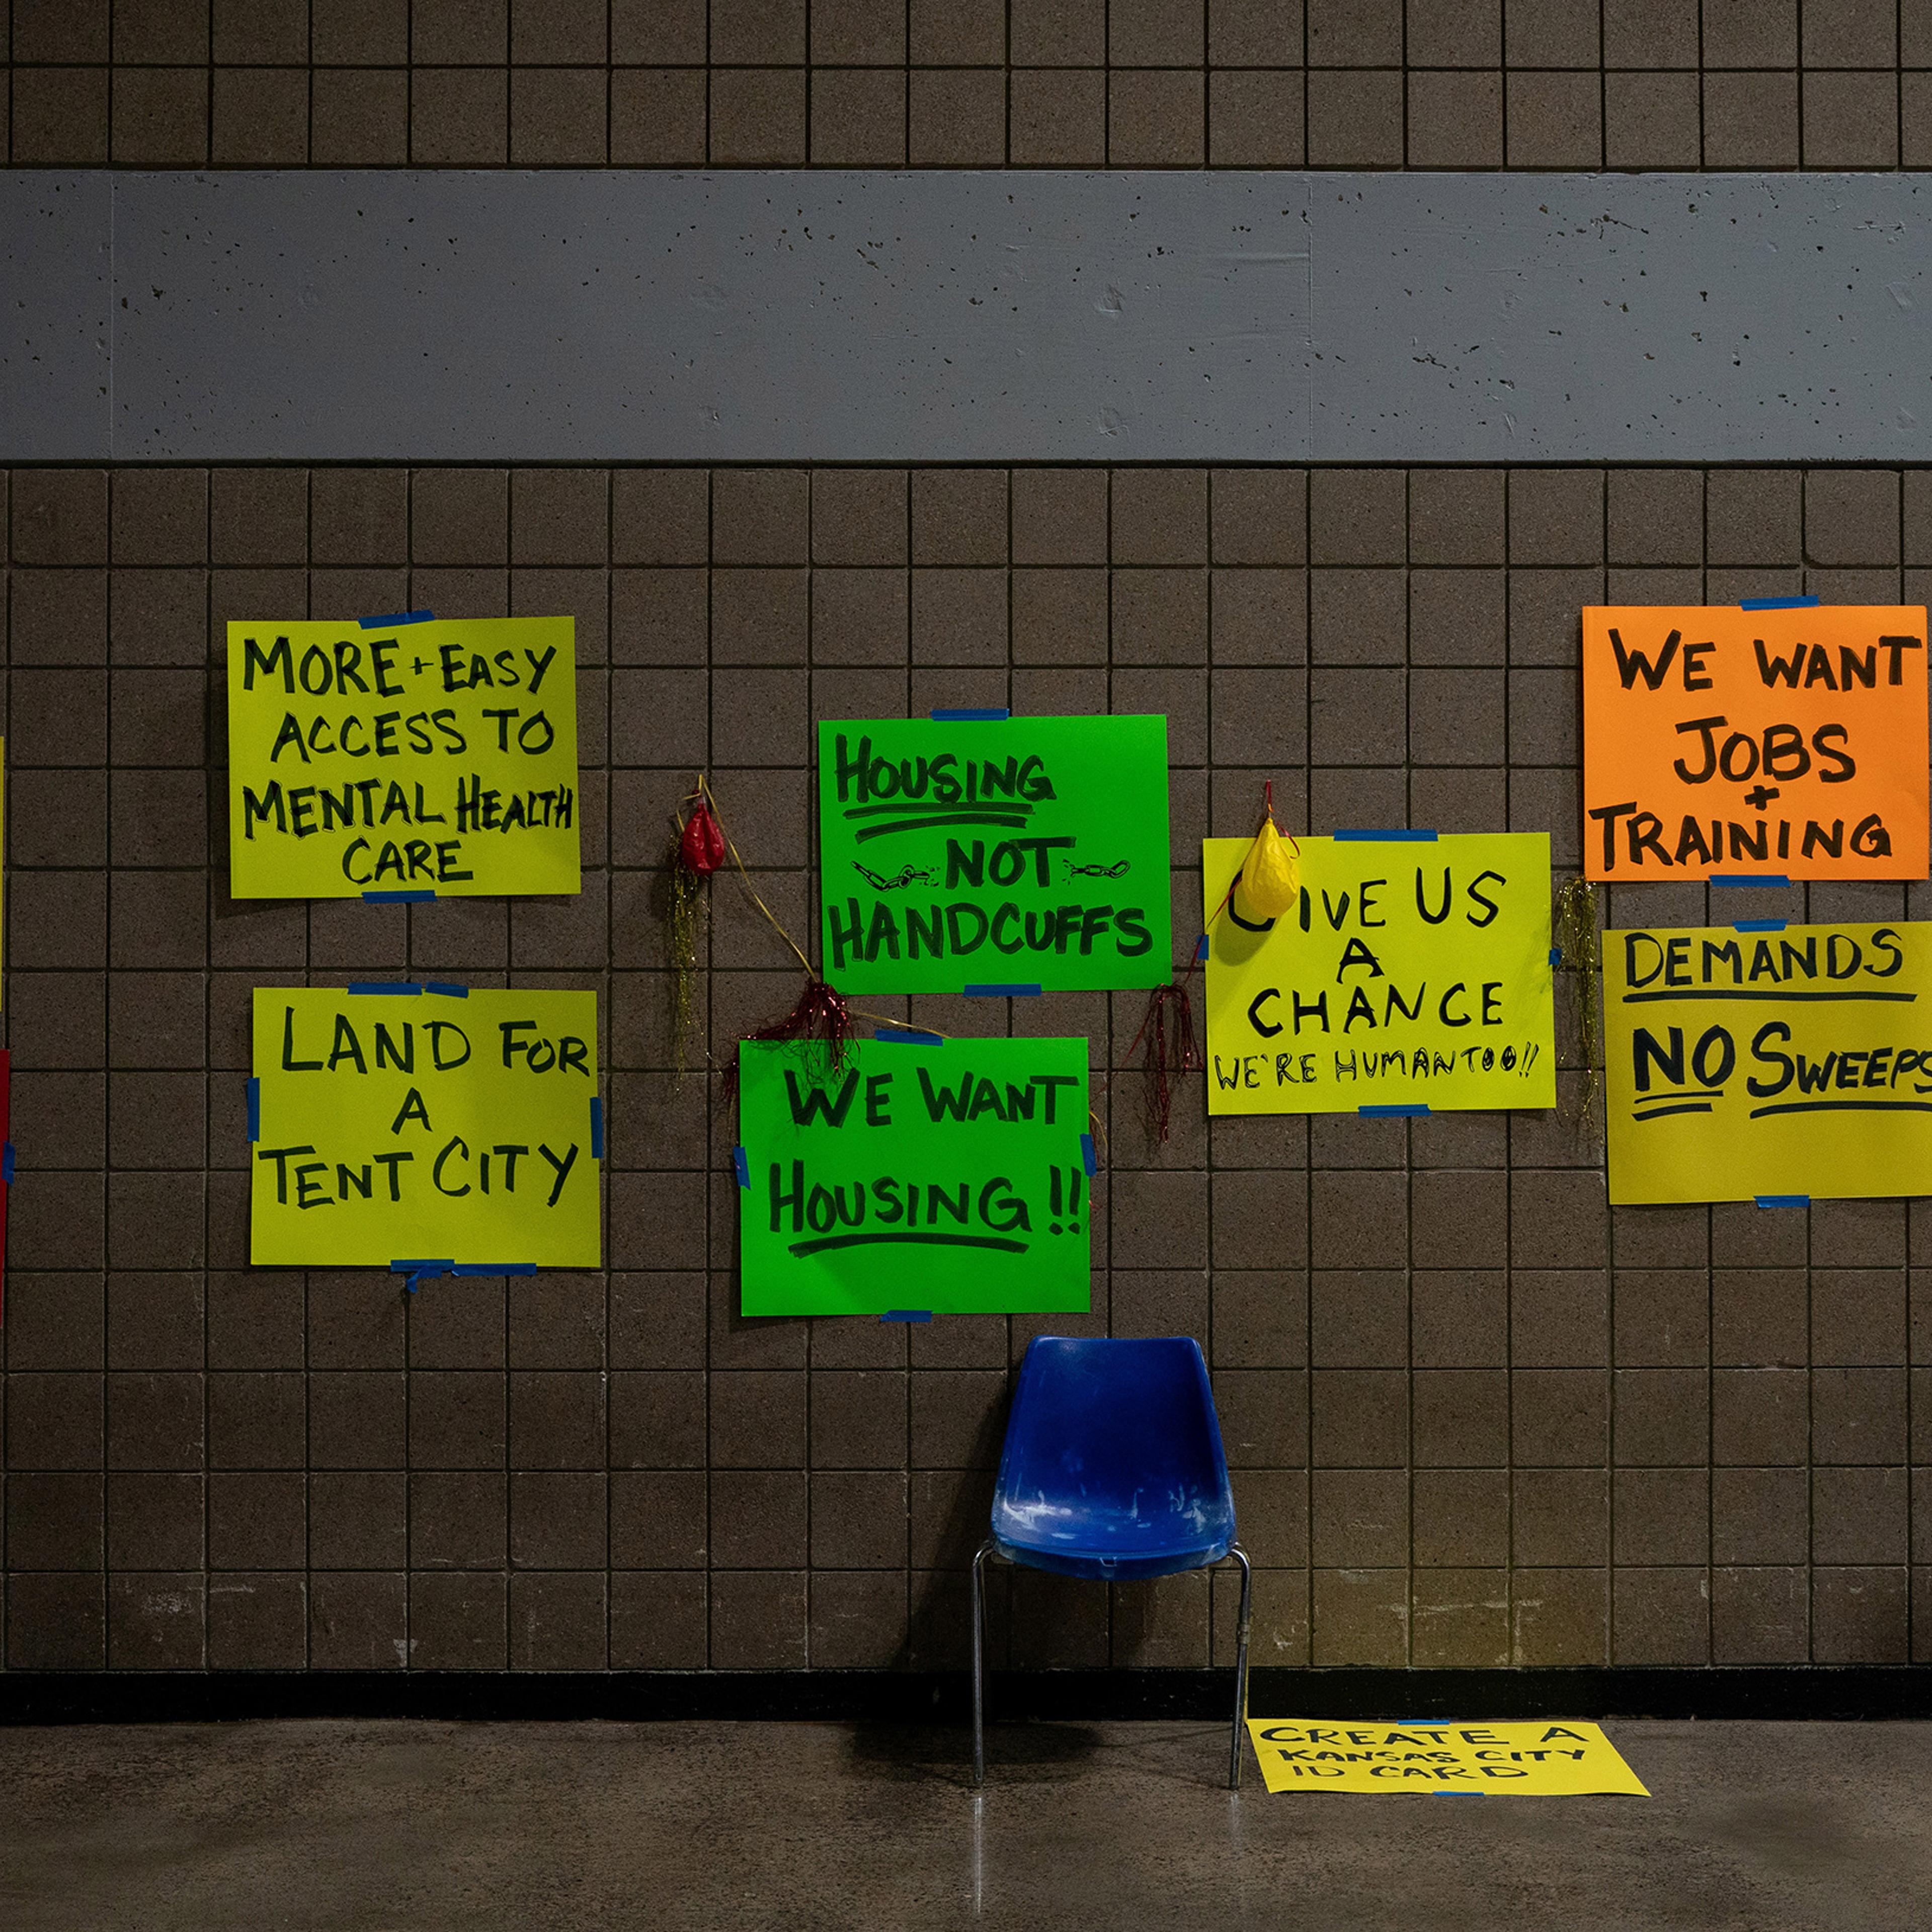 MORE + EASY
ACCESS TO
MENTAL HEALTH
CARE
LAND FOR
A
TENT CITY
HOUSING
NOT
HANDCUFFS
WE WANT
HOUSING!!
GIVE US
A
CHANCE
WE'RE HUMAN TOO!!
WE WANT
JOBS
+
TRAINING
DEMANDS
NO SWEEPS
CREATE A
KANSAS CITY
ID CARD